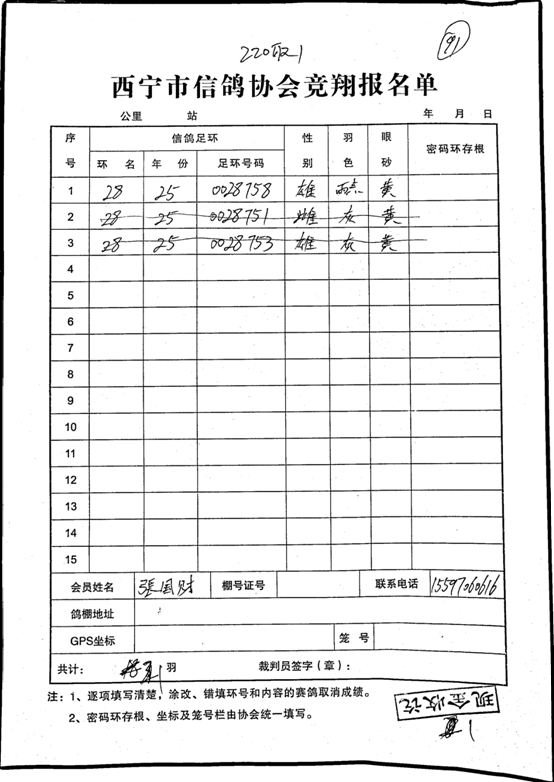 91
220取1
西宁市信鸽协会竞翔报名单
公里 站 年 月 日
序号 信鸽足环 性别 羽色 眼砂 密码环存根
环名 年份 足环号码
1 28 25 0028758 雄 雨点 黄
2 28 25 0028751 雌 灰 黄
3 28 25 0028753 雄 灰 黄
4
5
6
7
8
9
10
11
12
13
14
15
会员姓名 張国财 棚号证号 联系电话 15597060616
鸽棚地址
GPS坐标 笼号
共计： 羽 裁判员签字（章）：
注：1、逐项填写清楚，涂改、错填环号和内容的赛鸽取消成绩。
2、密码环存根、坐标及笼号栏由协会统一填写。
现金收讫